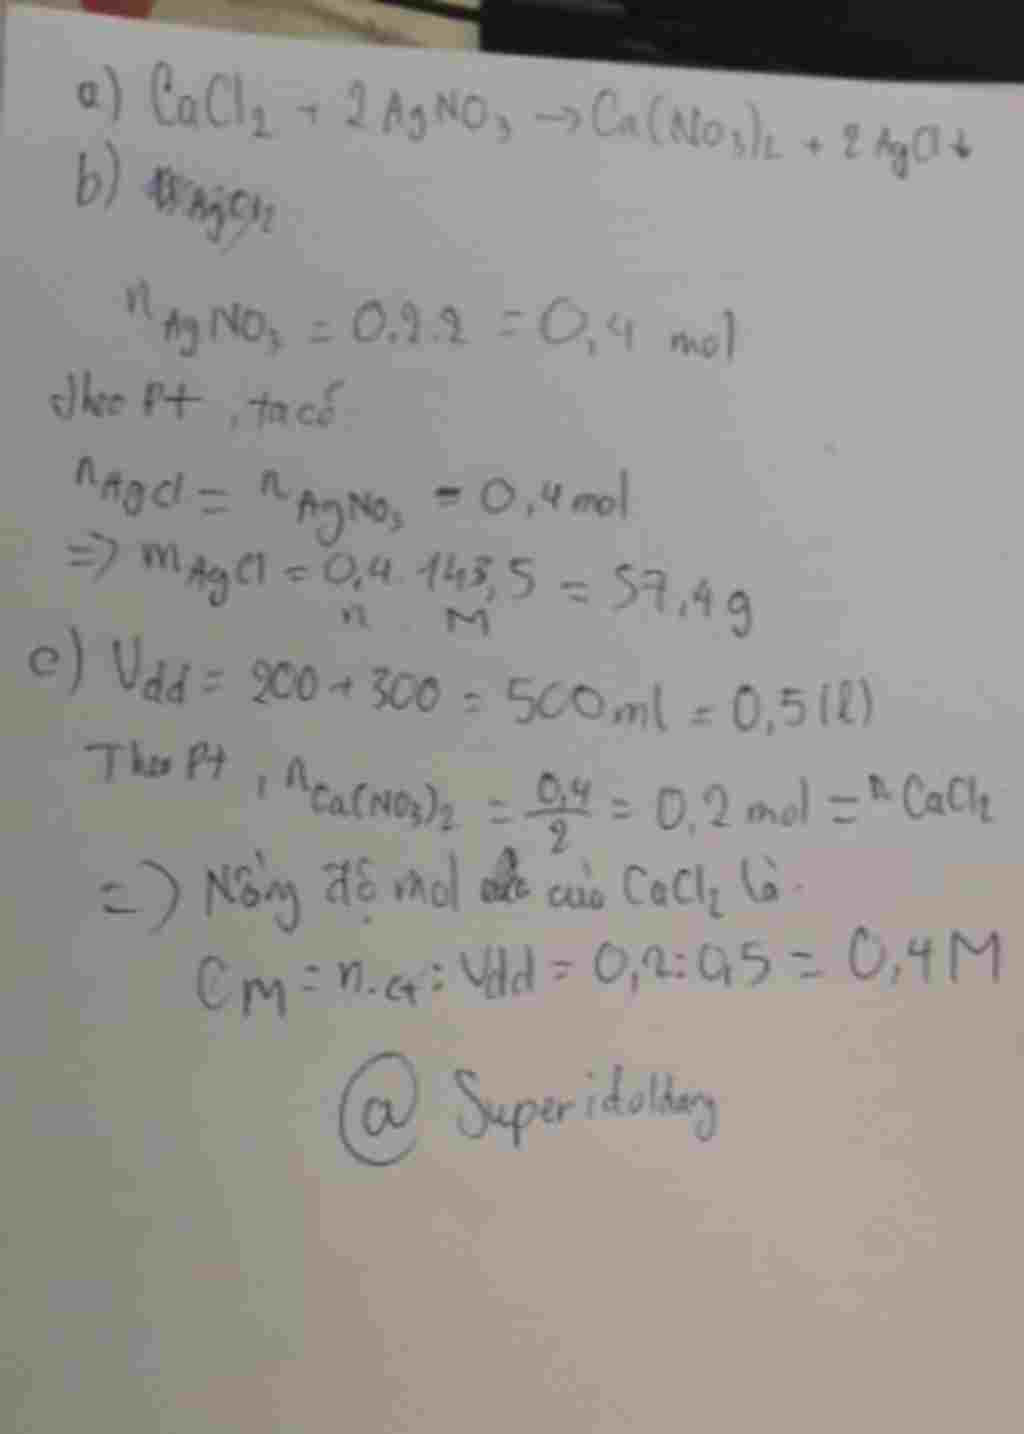 a) CaCl₂ + 2AgNO₃ → Ca(NO₃)₂ + 2AgCl↓
b)
n AgNO₃ = 0.2.2 = 0,4 mol
Theo Pt, ta có
n AgCl = n AgNO₃ = 0,4 mol
=> m AgCl = 0,4. 143,5 = 57,4g
n M
c) Vdd = 200 + 300 = 500 ml = 0,5 (l)
Theo Pt, n Ca(NO₃)₂ = 0,4/2 = 0,2 mol = n CaCl₂
=> Nồng độ mol của CaCl₂ là.
CM = n.ct : Vdd = 0,2:0,5 = 0,4M
@ Superidoldang